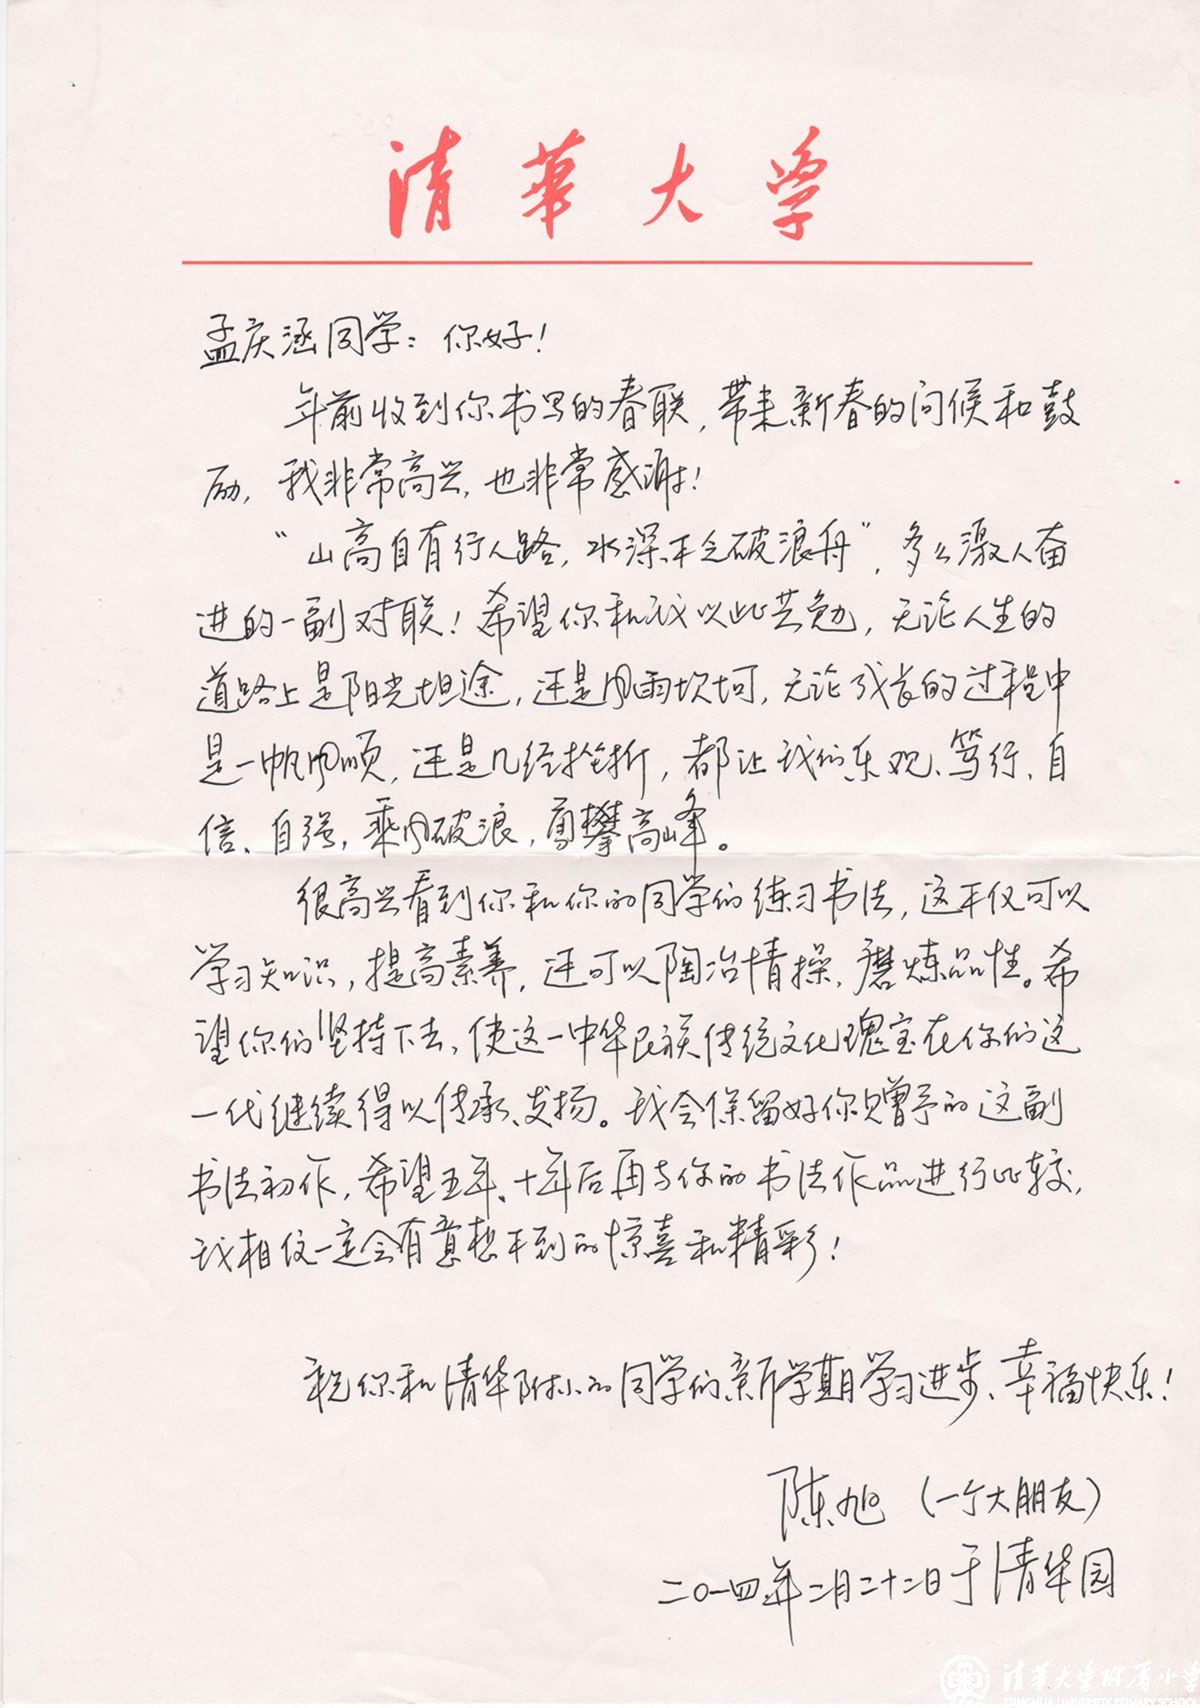 清華大学
孟庆涵同学：你好！
年前收到你书写的春联，带来新春的问候和鼓
励，我非常高兴，也非常感谢！
“山高自有行人路，水深不乏破浪舟”，多么激人奋
进的一副对联！希望你和我以此共勉，无论人生的
道路上是阳光坦途，还是风雨坎坷，无论成长的过程中
是一帆风顺，还是几经挫折，都让我们乐观、笃行、自
信、自强，乘风破浪，勇攀高峰。
很高兴看到你和你的同学们练习书法，这不仅可以
学习知识，提高素养，还可以陶冶情操，磨炼品性。希
望你们坚持下去，使这一中华民族传统文化瑰宝在你们这
一代继续得以传承、发扬。我会保留好你赠予的这副
书法初作，希望五年、十年后再与你的书法作品进行比较，
我相信一定会有意想不到的惊喜和精彩！
祝你和清华附小的同学们新学期学习进步、幸福快乐！
陈旭（一个大朋友）
二〇一四年二月二十二日于清华园
清华大学附属小学
TSINGHUA UNIVERSITY PRIMARY SCHOOL